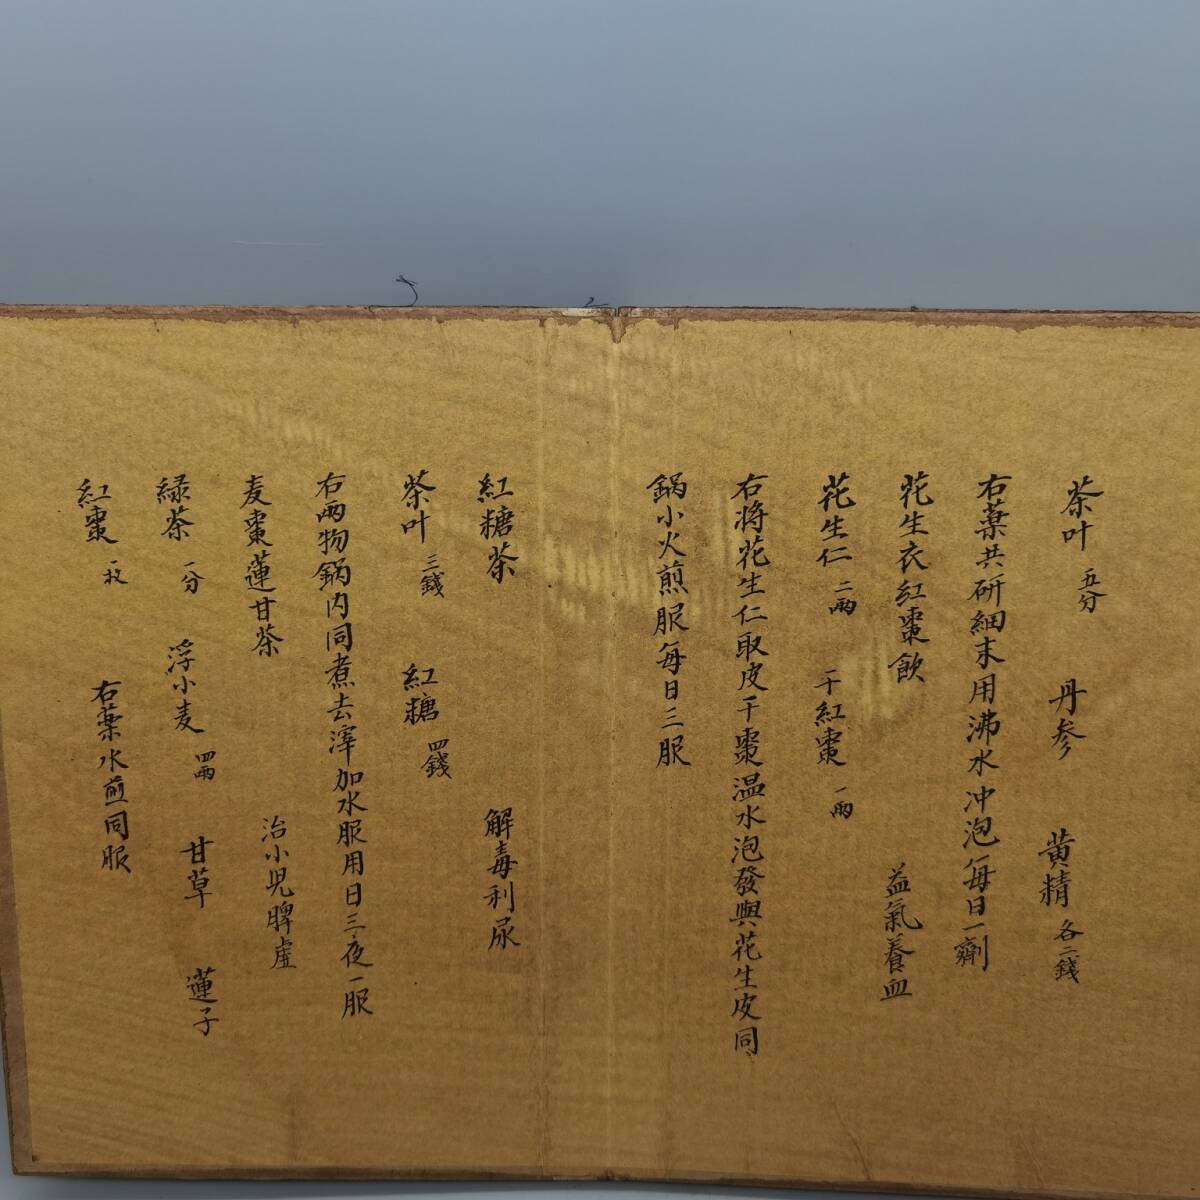 茶叶 五分 丹参 黄精 各二錢
右藥共研細末用沸水冲泡每日一劑
花生衣紅棗飲 益氣養血
花生仁 二兩 干紅棗 一兩
右將花生仁取皮干棗温水泡發與花生皮同
鍋小火煎服每日三服
紅糖茶 解毒利尿
茶叶 三錢 紅糖 四錢
右兩物鍋内同煮去滓加水服用日三夜一服
麦棗蓮甘茶 治小児脾虚
緑茶 一分 浮小麦 四兩 甘草 蓮子
紅棗 一枚 右藥水煎同服